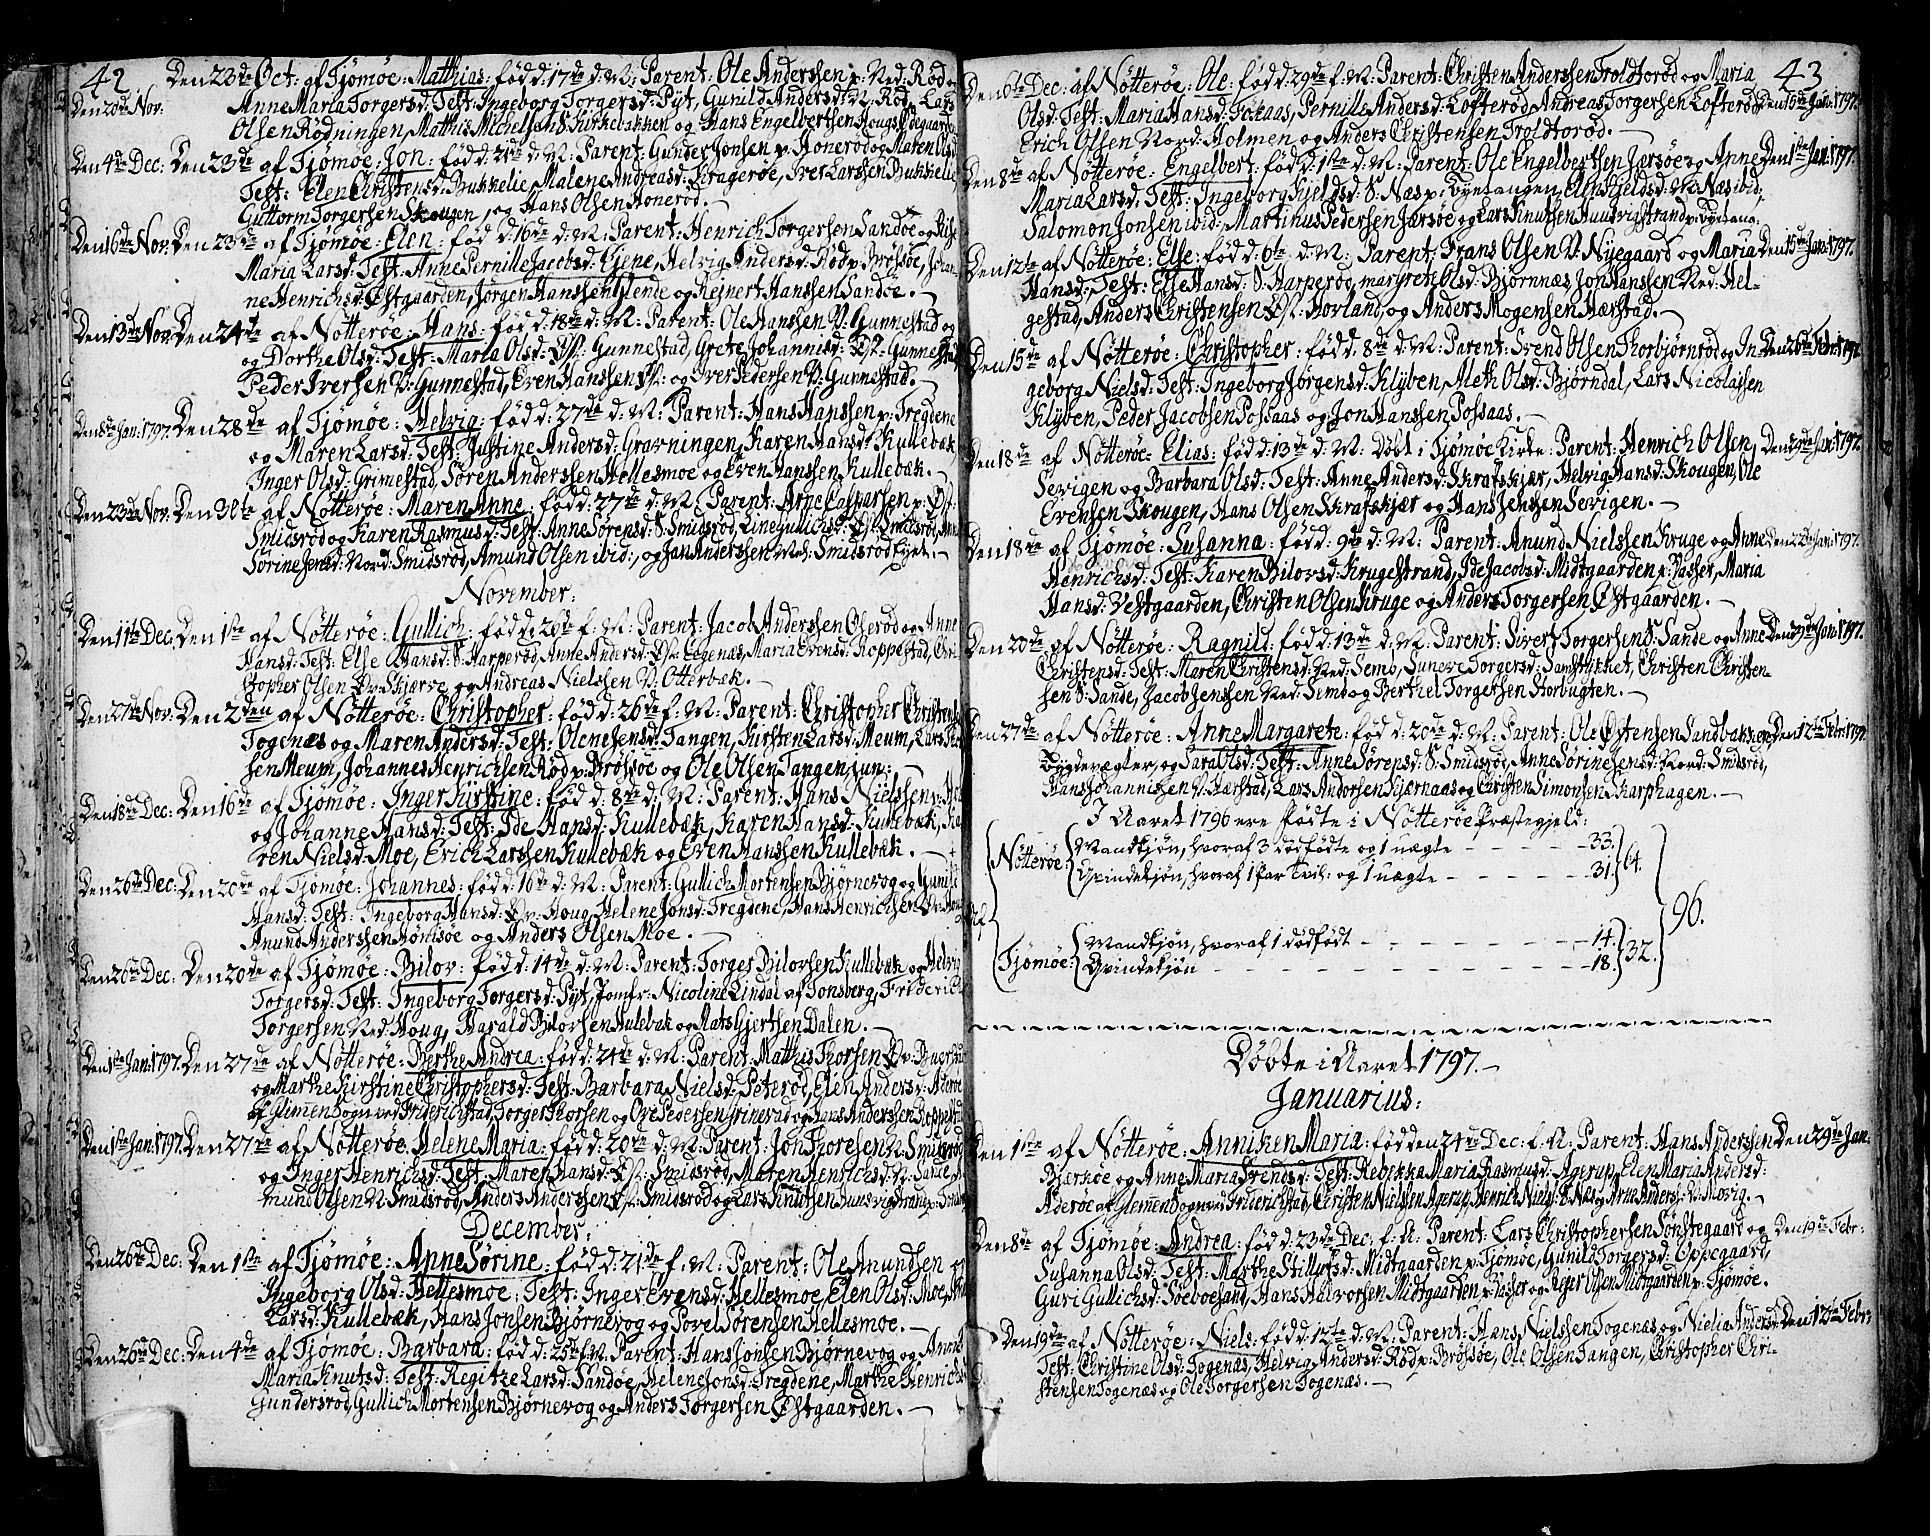 42
Den 23de Oct: af Tjömöe: Matthias: född: 17de d: M: Parent: Ole Anderssen p: Ned: Röd og
Den 20de Nov.
Anne Maria Torgersd: Test: Ingeborg Torgersd: Pyt, Gunild Andersd: N: Röd, Lars
Olsen Rödningen, Mathis Michelsen S: Kirkebakken og Hans Engelbertsen Hougs Ödegaard
Den 4de Dec: Den 23de af Tjömöe: Jon: född: 21de d: M: Parent: Gunder Jonsen p: Honeröd og Maren Olsd:
Test: Elen Christensd: Bukkelie, Malene Andreasd: Kragerøe, Iver Larssen Bukkelie
Guttorm Torgersen Skougen, og Hans Olsen Honeröd.
Den 16de Nov. Den 23de af Tjömöe: Elen: föd d: 16de d: M: Parent: Henrich Torgersen Sandöe og Else
Maria Larsd: Test: Anne Pernille Jacobsd: Giene, Helvig Andersd: Röd p: Brössöe, Johan-
ne Henrichsd: Östgaarden, Jörgen Hanssen Glende og Rejnert Hanssen Sandöe.
Den 13de Nov. Den 24de af Nötteröe: Hans: född: 18de d: M: Parent: Ole Hanssen V: Gunnestad og
og Dorthe Olsd: Test: Maria Olsd: Øst: Gunnestad, Grete Johannisd: Øst: Gunnestad
Peder Iversen V: Gunnestad, Even Hanssen Øst: og Iver Pedersen V: Gunnestad.
Den 8de Jan: 1797. Den 28de af Tjömöe: Helvig: född: 27de d: M: Parent: Hans Hanssen p: Tregdene
og Maren Larsd: Test: Justine Andersd: Gravningen, Karen Hansd: Kullebæk
Inger Olsd: Grimestad, Sören Anderssen Hellesmoe og Even Hanssen Kullebæk.
Den 23de Nov. Den 30te af Nötteröe: Maren Anne: född: 27de d: M: Parent: Arne Caspersen p: Øst:
Smidsröd og Karen Rasmusd: Test: Anne Sörensd: S: Smidsröd, Line Gullichsd: Øst: Smidsröd, Anne
Sörine Jensd: Nord: Smidsröd, Amund Olsen ibid:, og Jan Anderssen Mel: Smidsröd
November:
Den 11te Dec. Den 1ste af Nötteröe: Gullich: född: 28de f: M: Parent: Jacob Anderssen Oseröd og Anne
Hansd: Test: Else Hansd: S: Harperöd, Anne Andersd: Øst: Eegenæs, Maria Evensd: Roppestad, Chri-
stopher Olsen Øv: Skjærve og Andreas Nielssen V: Otterbæk.
Den 27de Nov. Den 2den af Nötteröe: Christopher: född: 26de f: M: Parent: Christopher Christensen
Togenæs og Maren Andersd: Test: Olene Jensd: Tangen, Kirsten Larsd: Meum, Lars
sen Meum, Johannes Henrichsen Röd p: Brössöe og Ole Olsen Tangen, jun:
Den 18de Dec: Den 16de af Tjömöe: Inger Kirstine: föd d: 8de d: M: Parent: Hans Nielssen p:
og Johanne Hansd: Test: Ide Hansd: Kullebæk, Karen Hansd: Kullebæk, Ka-
ren Nielsd: Moe, Erich Larssen Kullebæk og Even Hanssen Kullebæk.
Den 26de Dec: Den 20de af Tjömöe: Johannes: född: 16de d: M: Parent: Gullich Mortensen Björnevog og Gunild
Hansd: Test: Ingeborg Hansd: Øv: Houg, Helene Jonsd: Tregdene, Hans Henrichsen Øv: Houg
Anund Anderssen Hönisöe og Anders Olsen Moe.
Den 26de Dec. Den 20de af Tjömöe: Bilov: född: 14de d: M: Parent: Torger Bilovsen Kullebæk og Helvig
Torgersd: Test: Ingeborg Torgersd: Pyt, Jomfr: Nicoline Lindal af Tonsberg, Friderich
Torgersen Ned: Houg, Harald Bilovsen Hulebak og Mats Gjertsen Dalen.
Den 1ste Jan: 1797. Den 27de af Nötteröe: Berthe Andrea: född: 24de d: M: Parent: Matthis Thorsen Øv:
og Marthe Kirstine Christophersd: Test: Barbara Nielsd: Peteröd, Elen Andersd: Aderöe
af Glemmen Sogn ved Friderichstad, Torger Thorsen og Ove Pedersen Grinevad og Hans Anderssen Roppestad
Den 1ste Jan: 1797. Den 27de af Nötteröe: Helene Maria: född: 20de d: M: Parent: Jon Thoresen N: Smidsröd
og Inger Henrichsd: Test: Maren Hansd: Øst: Smidsröd, Maren Henrichsd: N: Sande, A-
mund Olsen N: Smidsröd, Anders Anderssen Øst: Smidsröd og Lars Knuthsen Huusvigstrand p:
December:
Den 26de Dec: Den 1ste af Tjömöe: Anne Sörine: född: 21de f: M: Parent: Ole Amundsen og
Ingeborg Olsd: Hellesmoe: Test: Inger Evensd: Hellesmoe, Elen Olsd: Moe,
Larsd: Kullebæk, Hans Jonsen Björnevog og Povel Sörensen Hellesmoe.
Den 26de Dec: Den 4de af Tjömöe: Barbara: född: 25de f: M: Parent: Hans Jonsen Björnevog og Anne
Maria Knutsd: Test: Regitze Larsd: Sandöe, Helene Jonsd: Tregdene, Marthe Henrichsd:
Gundersröd, Gullich Mortensen Björnevog og Anders Torgersen Östgaarden.
43
Den 6te Dec. af Nötteröe: Ole: född: 29de f: M: Parent: Christen Anderssen Troldtoröd og Maria
Olsd: Test: Maria Hansd: Fokaas, Pernille Andersd: Lofteröd, Andreas Torgersen Lofteröd, Den 15de Jan: 1797.
Erich Olsen Nord: Holmen og Anders Christensen Troldtoröd.
Den 8de af Nötteröe: Engelbert: född: 1ste d: M: Parent: Ole Engelbertsen Jærsöe og Anne Den 1ste Jan: 1797.
Maria Larsd: Test: Ingeborg Kjeldsd: S: Næs p: Byetangen, Elen Kjeldsd: N: Næs ibid,
Salomon Jonsen ibid: Martinus Pedersen Jærsöe og Lars Knuthsen Huusvigstrand p: Byetang.
Den 12te af Nötteröe: Else: född: 6te d: M: Parent: Frans Olsen V: Nyegaard og Maria Den 15de Jan: 1797.
Hansd: Test: Else Hansd: S: Harperöd, margrete Olsd: Björnnæs, Jon Hanssen Ned: Hel-
gestad, Anders Christensen Øst: Hovland, og Anders Mogensen Hærstad.
Den 15de af Nötteröe: Christopher: född: 8de d: M: Parent: Svend Olsen Thorbjörnröd og In- Den 26de Febr: 1797.
geborg Nielsd: Test: Ingeborg Jörgensd: Klöben, Aleth Olsd: Björndal, Lars Nicolajsen
Klyben, Peder Jacobsen Possaas og Jon Hanssen Possaas.
Den 18de af Nötteröe: Elias: född: 13de d: M: Döbt i Tjömöe Kirke: Parent: Henrich Olsen, Den 29de Jan: 1797.
Sevigen og Barbara Olsd: Test: Anne Andersd: Skrafskjær, Helvig Hansd: Skougen, Ole
Evensen Skougen, Hans Olsen Skrafskjær og Hans Jensen Sevigen.
Den 18de af Tjömöe: Susanna: född: 9de d: M: Parent: Anund Nielssen Kruge og Anne Den 22de Jan: 1797.
Henrichsd: Test: Karen Bilovsd: Krugestrand, Ide Jacobsd: Midtgaarden p: Vasser, Maria
Hansd: Vestgaarden, Christen Olsen Kruge og Anders Torgersen Östgaarden.
Den 20de af Nötteröe: Ragnild: född: 13de d: M: Parent: Sivert Torgersen S: Sande og Anne Den 29de Jan: 1797.
Christensd: Test: Maren Christensd: Ned: Semb, Suneve Torgersd: Sandstykket, Christen Christen-
sen S: Sande, Jacob Jenssen Ned: Semb og Berthel Torgersen Storbugten.
Den 27de af Nötteröe: Anne Margarete: föd d: 20de d: M: Parent: Ole Östensen Sandbakken, Den 12te Febr: 1797.
Bygdevægter, og Sara Olsd: Test: Anne Sörensd: S: Smidsröd, Anne Sörine Jensd: Nord: Smidsröd,
Hans Johannissen V: Hærstad, Lars Andersen Kjærnaas og Christen Simonsen Skarphagen.
I Aaret 1796 ere Födte i Nötteröe Præstegjeld:
Nötteröe: Mandkjön, hvoraf 3 dødfödte og 1 uægte – 33.
Qvindekjön, hvoraf 1 Par Tvil: og 1 uægte – 31. 64.
96.
Tjömöe: Mandkjön, hvoraf 1 dödfödt – 14.
Qvindekjön – 18. 32.
Döbte i Aaret 1797.
Januarius:
Den 1ste af Nötteröe: Anniken Maria: född en 24de Dec: f: A: Parent: Hans Anderssen Den 29de Jan:
Bjerköe og Anne Maria Svendsd: Test: Rebekka Maria Rasmusd: Agerup, Elen Maria Andersd:
Aderöe af Glemmen Sogn ved Friderichstad, Christen Nielssen Agerup, Henrich Niels: S: Næs og Arne Anders: V: Movig.
Den 8de af Tjömöe: Andrea: föd d: 23de Dec: f: A: Parent: Lars Christophersen Sönstegaard og Den 19de Febr:
Susanna Olsd: Test: Marthe Stillufsd: Midtgaarden p: Tjömöe, Gunild Torgersd: Oppegaard,
Guri Gullichsd: Soeboesand, Hans Halvorsen Midtgaarden p: Vasser og Rejer Olsen Midtgaarden p: Tjömöe.
Den 19de af Nötteröe: Niels: född: 12te d: M: Parent: Hans Nielssen Togenæs og Nielia Andersd: Den 12te Febr:
Test: Christine Olsd: Togenæs, Helvig Andersd: Röd p: Brössöe, Ole Olsen Tangen, Christopher Chri-
stensen Togenæs og Ole Torgersen Togenæs.